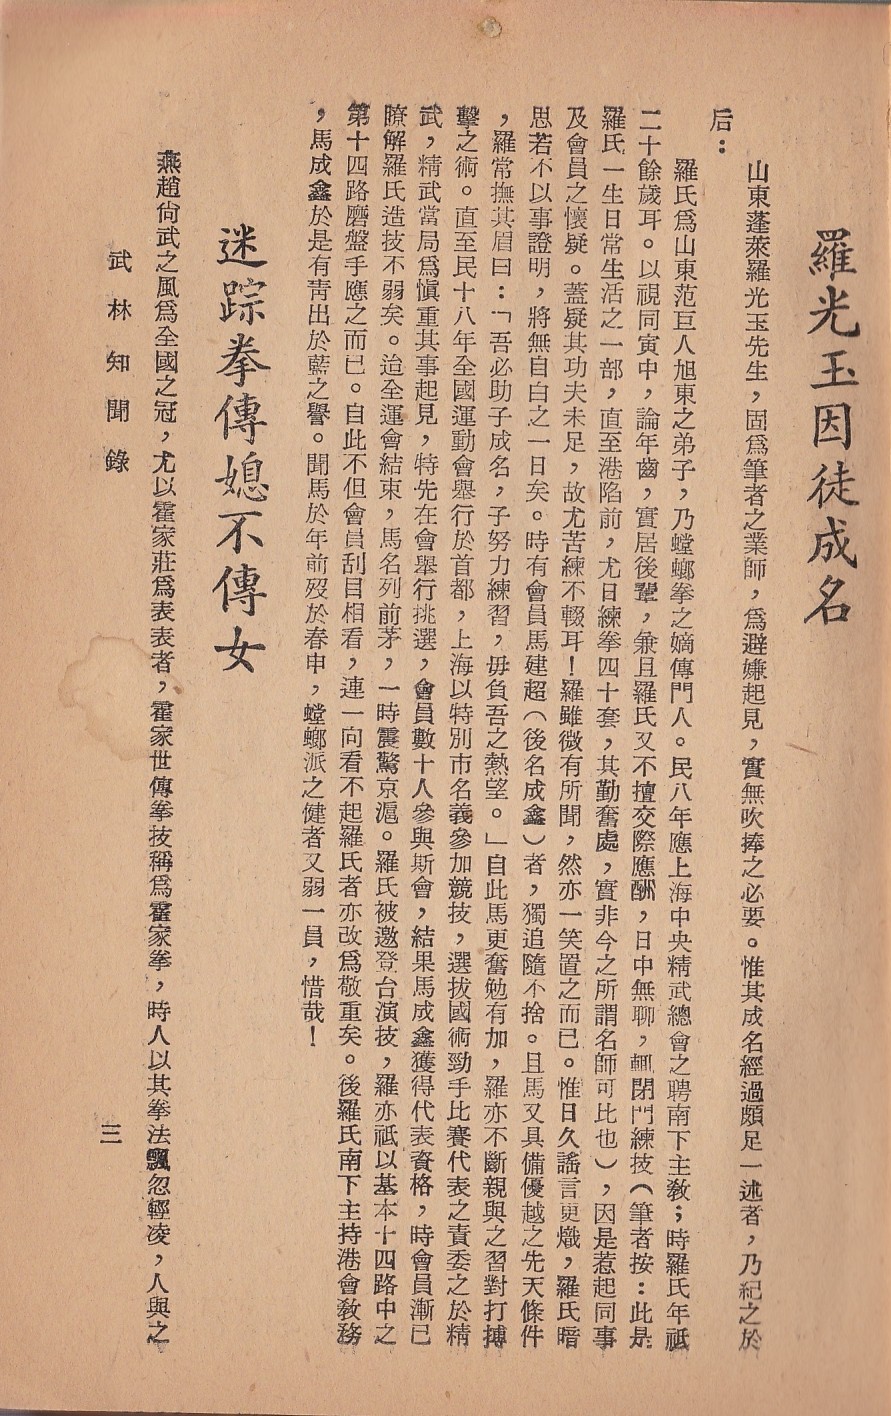 羅光玉因徒成名
山東蓬萊羅光玉先生，固爲筆者之業師，爲避嫌起見，實無吹捧之必要。惟其成名經過頗足一述者，乃紀之於
后：
羅氏爲山東范巨人旭東之弟子，乃螳螂拳之嫡傳門人。民八年應上海中央精武總會之聘南下主敎；時羅氏年祗
二十餘歲耳。以視同寅中，論年齒，實居後輩，兼且羅氏又不擅交際應酬，日中無聊，輒閉門練技（筆者按：此是
羅氏一生日常生活之一部，直至港陷前，尤日練拳四十套，其勤奮處，實非今之所謂名師可比也），因是惹起同事
及會員之懷疑。蓋疑其功夫未足，故尤苦練不輟耳！羅雖微有所聞，然亦一笑置之而已。惟日久謠言更熾，羅氏暗
思若不以事證明，將無自白之一日矣。時有會員馬建超（後名成鑫）者，獨追隨不捨。且馬又具備優越之先天條件
，羅常撫其眉曰：「吾必助子成名，子努力練習，毋負吾之熱望。」自此馬更奮勉有加，羅亦不斷親與之習對打搏
擊之術。直至民十八年全國運動會舉行於首都，上海以特別市名義參加競技，選拔國術勁手比賽代表之責委之於精
武，精武當局爲愼重其事起見，特先在會舉行挑選，會員數十人參與斯會，結果馬成鑫獲得代表資格，時會員漸已
瞭解羅氏造技不弱矣。迨全運會結束，馬名列前茅，一時震驚京滬。羅氏被邀登台演技，羅亦祗以基本十四路中之
第十四路磨盤手應之而已。自此不但會員刮目相看，連一向看不起羅氏者亦改爲敬重矣。後羅氏南下主持港會敎務
，馬成鑫於是有靑出於藍之譽。聞馬於年前歿於春申，螳螂派之健者又弱一員，惜哉！
迷踪拳傳媳不傳女
燕趙尙武之風爲全國之冠，尤以霍家莊爲表表者，霍家世傳拳技稱爲霍家拳，時人以其拳法飄忽輕凌，人與之
武林知聞錄
三